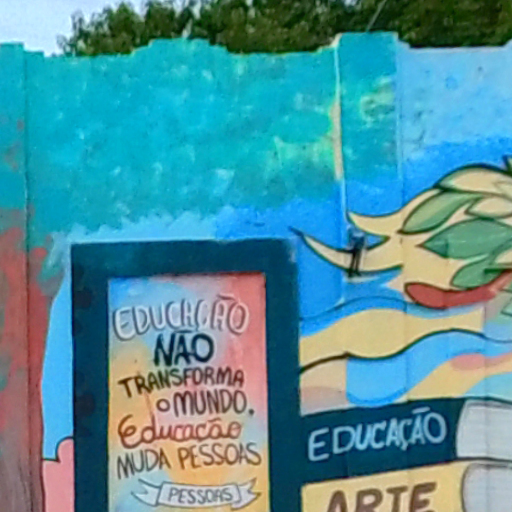 EDUCAÇÃO
NÃO
TRANSFORMA
O MUNDO.
Educação
MUDA PESSOAS
PESSOAS
EDUCAÇÃO
ARTE